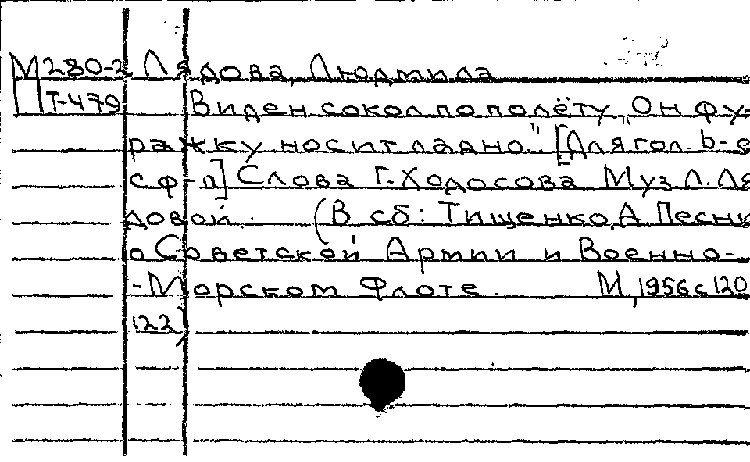 М280-2 Лядова, Людмила
Т-479 Виден сокол по полёту „Он фу-
ражку носит ладно." [Для гол. в с
сф-п] Слова Г. Ходосова Муз Л. Ля
довой. (В сб: Тищенко, А Песни
о Советской Армии и Военно-
-Морском Флоте. М, 1956 с 120
122)